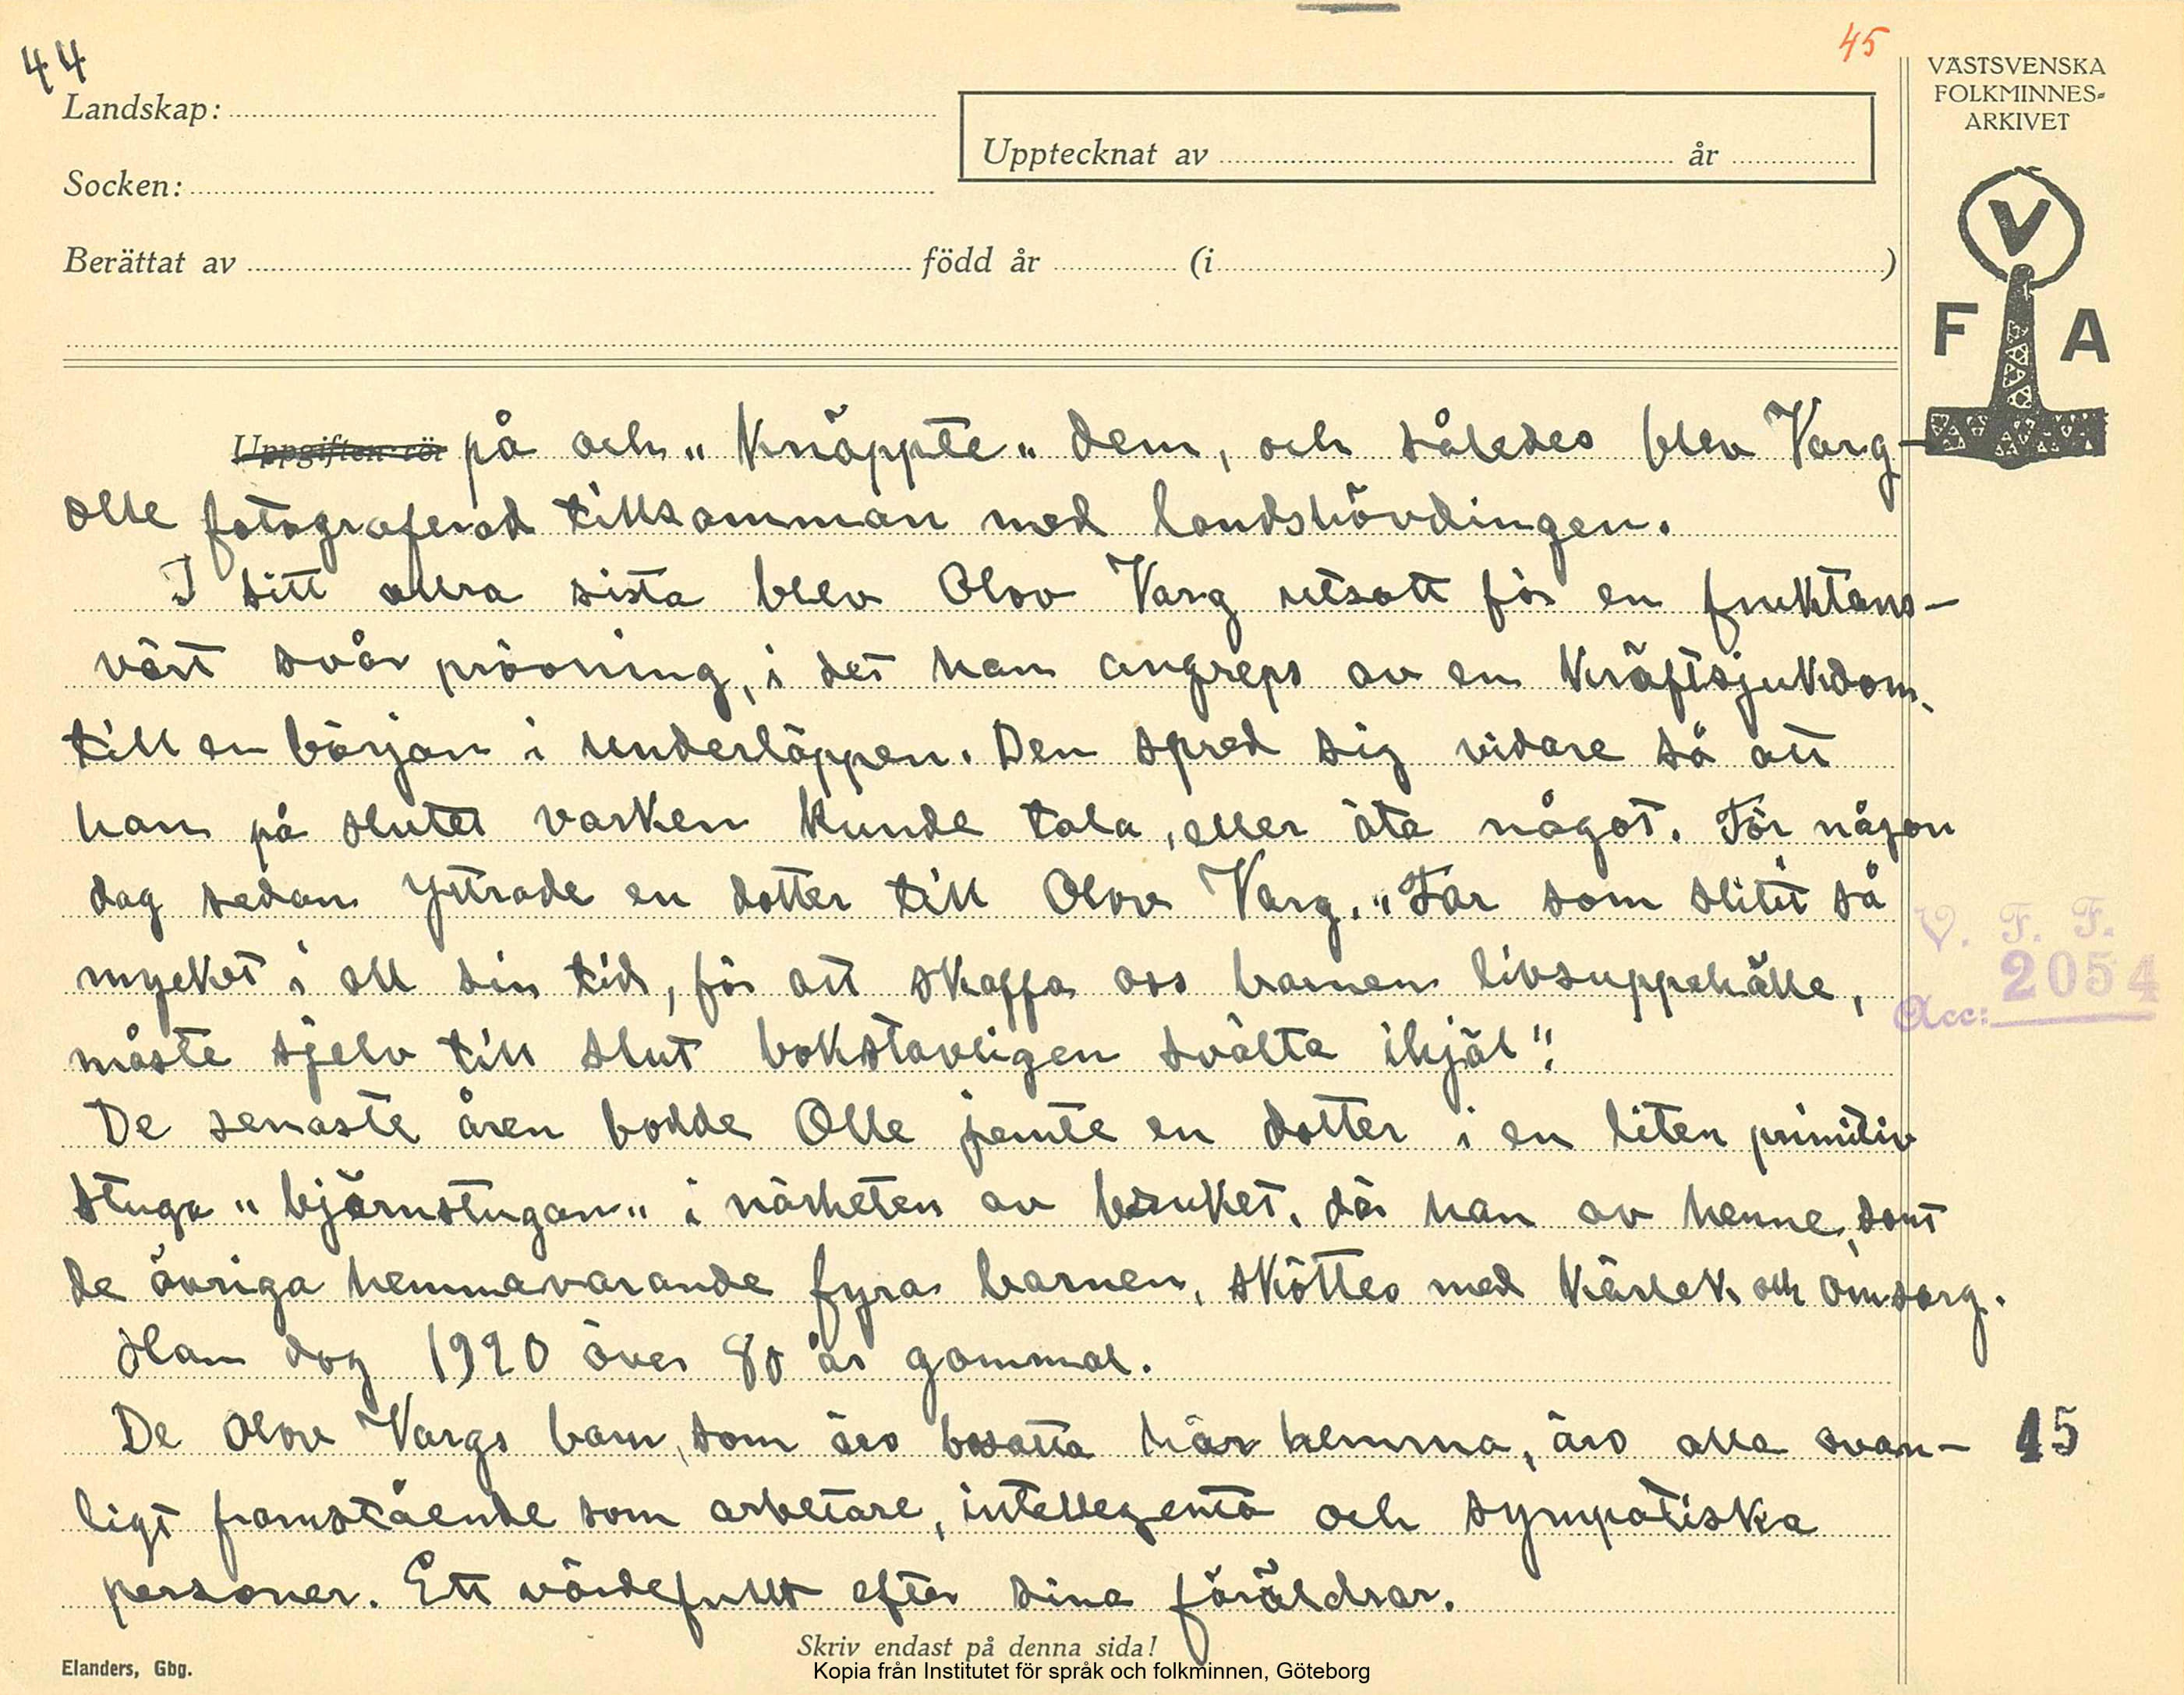 44
45
Landskap:
Socken:
Upptecknat av år
Berättat av född år (i )
VÄSTSVENSKA
FOLKMINNES-
ARKIVET
V
F A
Uppgiften rör på och „ knäppte „ dem, och således blev Varg-
olle fotograferad tillsamman med landshövdingen.
I sitt allra sista blev Olov Varg utsatt för en fruktans-
värt svår prövning, i det han angreps av en kräftsjukdom,
till en början i underläppen. Den spred sig vidare så att
han på slutet varken kunde tala, eller äta något. För någon
dag sedan yttrade en dotter till Olov Varg. „Far som slitit så
mycket i all sin tid, för att skaffa oss barnen livsuppehälle,
måste sjelv till slut bokstavligen svälta ihjäl".
De senaste åren bodde Olle jemte en dotter i en liten primitiv
stuga „ björnstugan „ i närheten av bruket, där han av henne, samt
de övriga hemmavarande fyra barnen, sköttes med kärlek och omsorg.
Han dog 1920 över 80 år gammal.
De Olov Vargs barn, som äro bosatta här hemma, äro alla ovan-
ligt framstående som arbetare, intellegenta och sympatiska
personer. Ett värdefullt efter sina föräldrar.
V. F. F.
Acc: 2054
45
Skriv endast på denna sida!
Elanders, Gbg.
Kopia från Institutet för språk och folkminnen, Göteborg